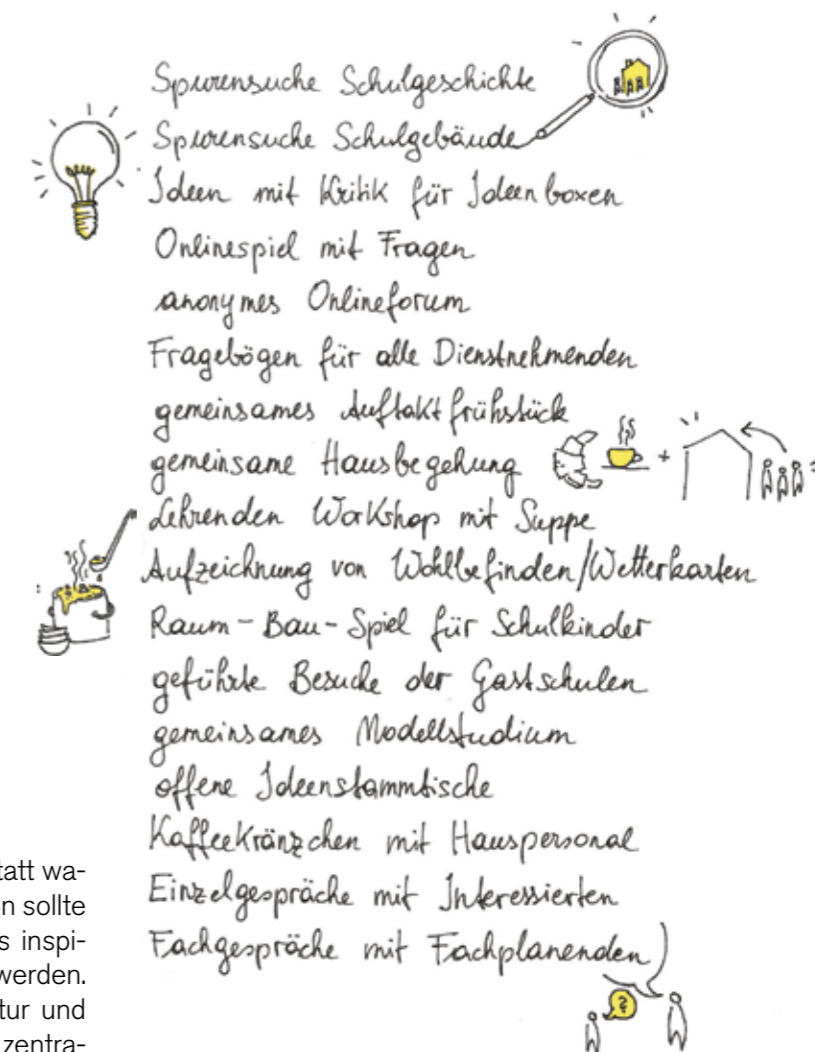 Spurensuche Schulgeschichte
Spurensuche Schulgebäude
Ideen mit Kritik für Ideenboxen
Onlinespiel mit Fragen
anonymes Onlineforum
Fragebögen für alle Dienstnehmenden
gemeinsames Auftaktfrühstück
gemeinsame Hausbegehung
+
Lehrenden Workshop mit Suppe
Aufzeichnung von Wohlbefinden/Wetterkarten
Raum-Bau-Spiel für Schulkinder
geführte Besuche der Gastschulen
gemeinsames Modellstudium
offene Ideenstammtische
Kaffeekränzchen mit Hauspersonal
Einzelgespräche mit Interessierten
Fachgespräche mit Fachplanenden
?
tatt wa-
n sollte
s inspi-
werden.
tur und
zentra-